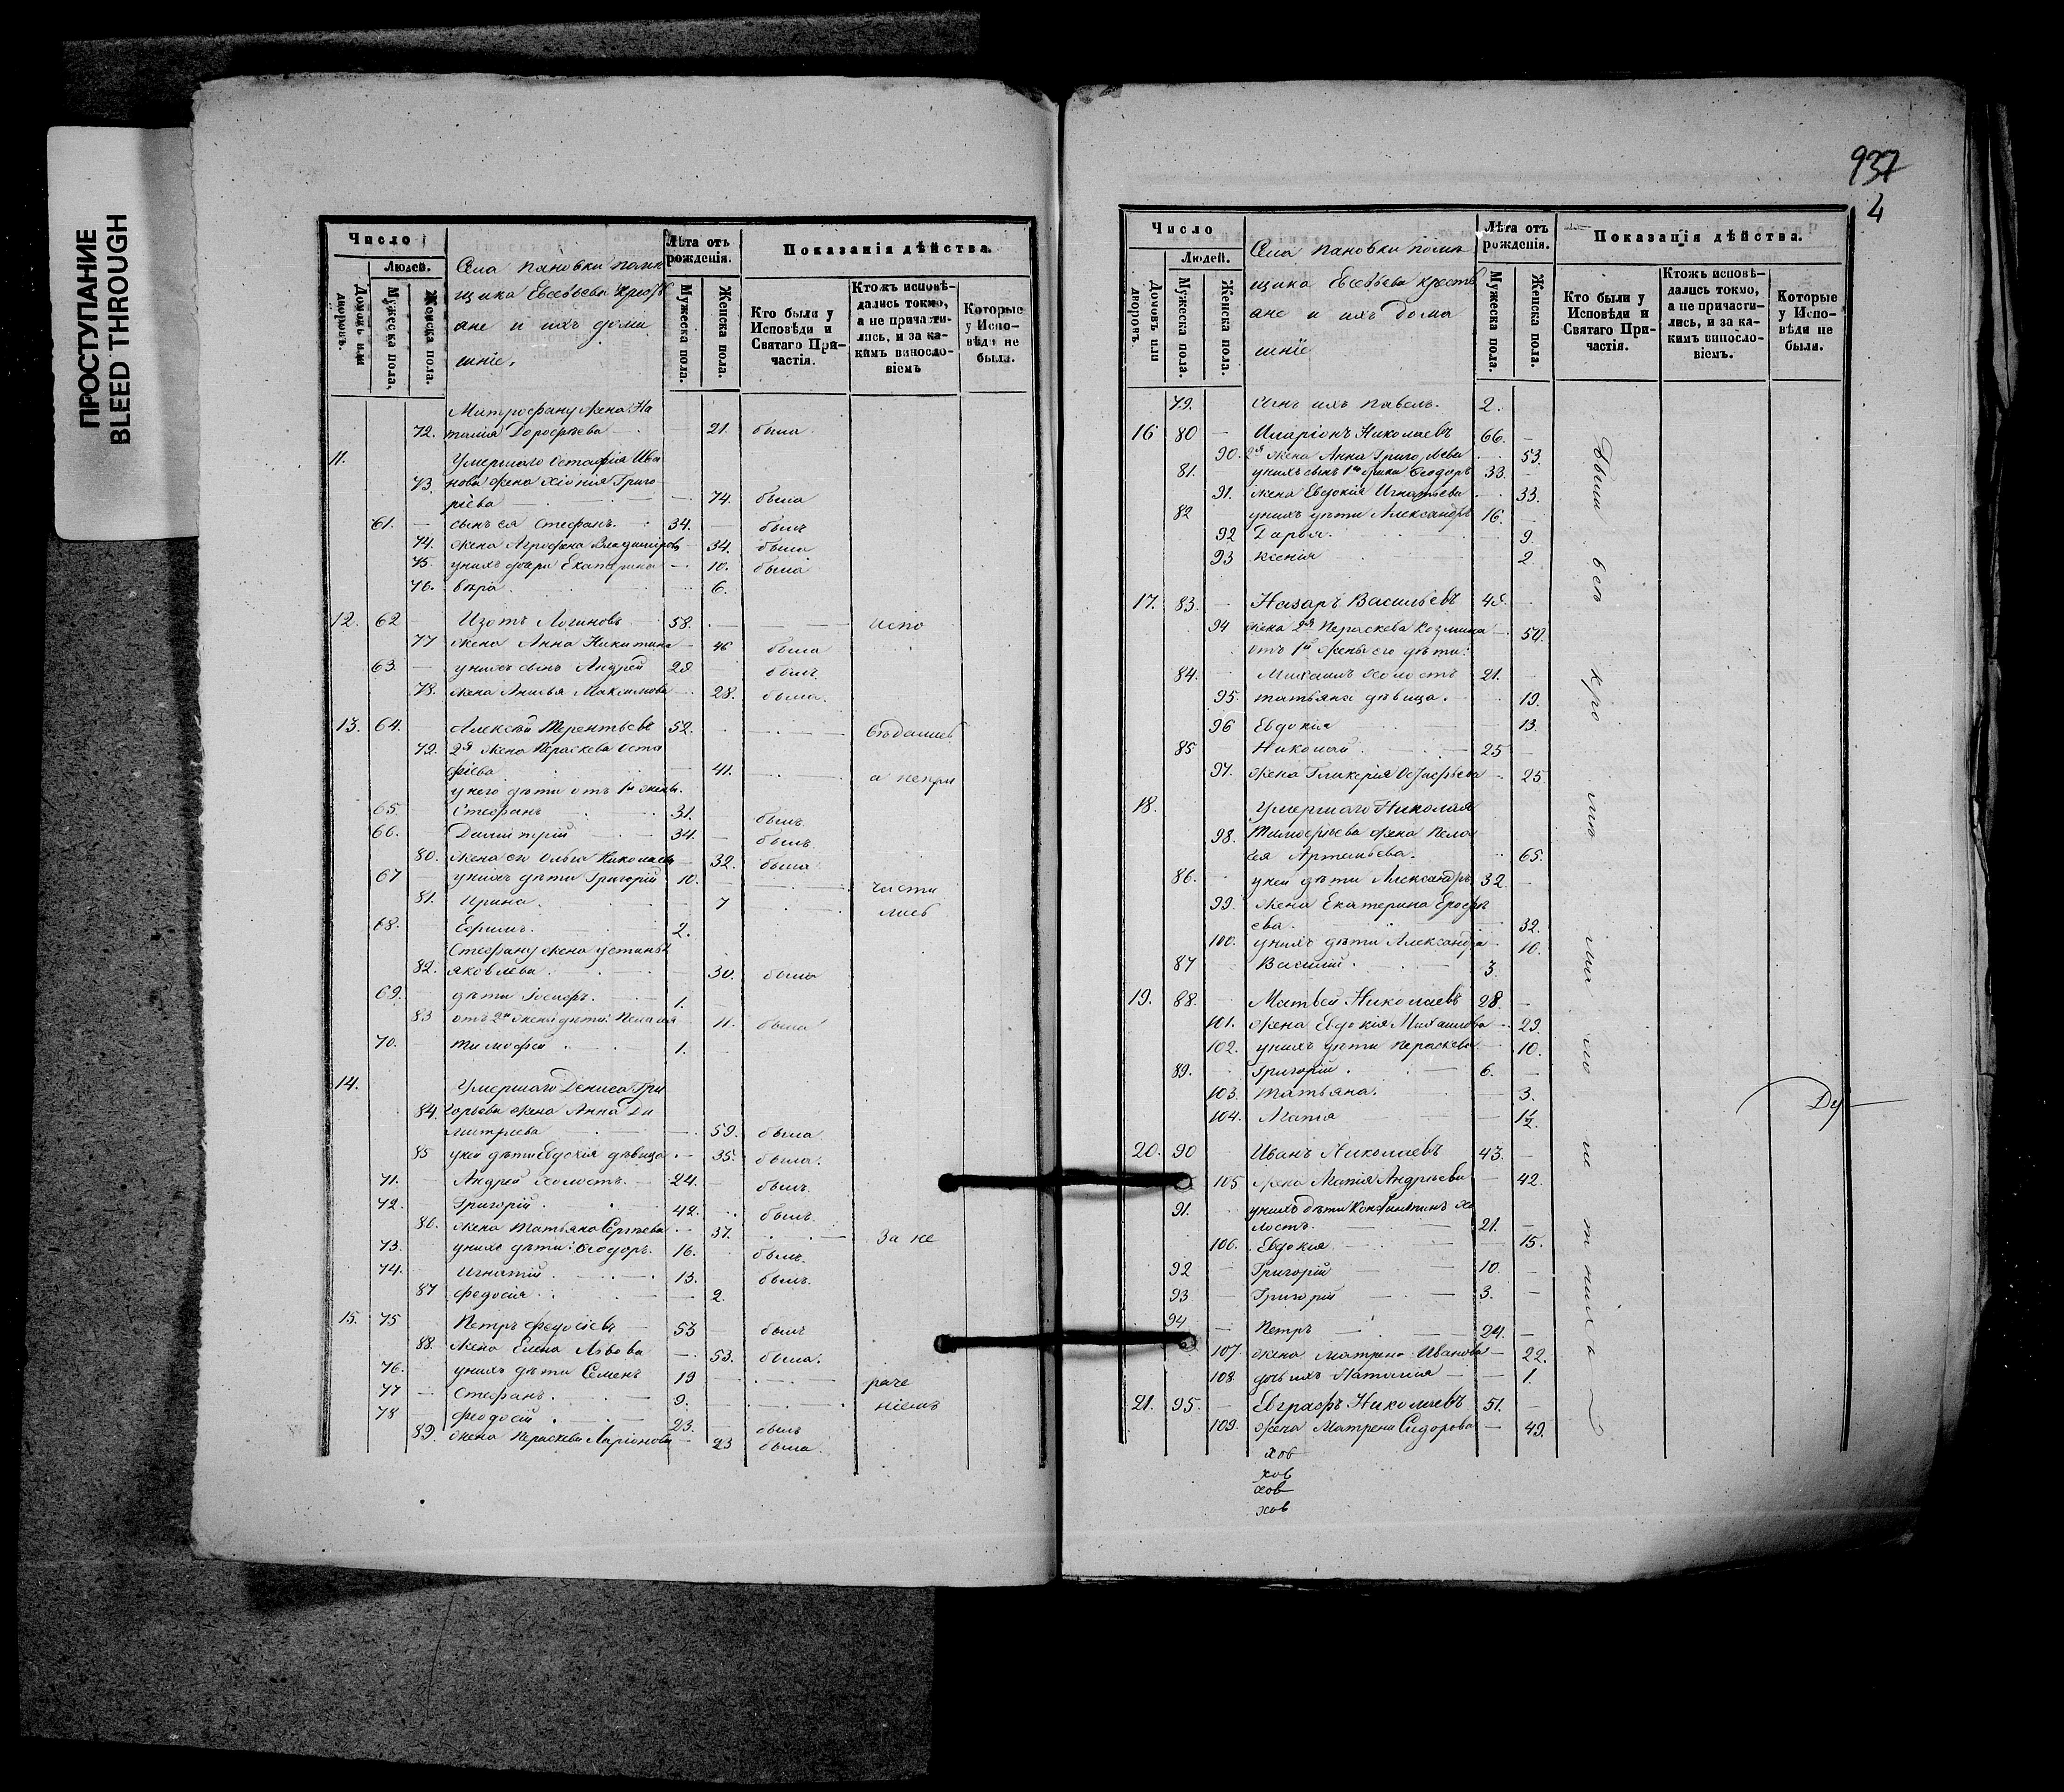 ПРОСТУПАНИЕ
BLEED THROUGH
Число
Людей.
Домовъ или дворовъ.
Мужеска пола.
Женска пола.
Села Пановки помѣ
щика Евсевьева крестья
ане и ихъ дома
шніе.
Лѣта отъ рожденія.
Мужеска пола.
Женска пола.
Показанія дѣйства.
Кто были у Исповѣди и Святаго При-частія.
Ктожъ исповѣ-дались токмо, а не причасти-лись, и за ка-кимъ винослo-віемъ
Которые у Испо-вѣди не были.
Митрофану жена На
72. талія Дорофѣева — 21. была
11. Умершаго Остафія Ива
73. нова жена Хіонія Григо
рiева — 74. была
61. — сынъ ея Стефанъ. 34. — былъ
74. жена Агрофена Владимиров — 34. была
75. у нихъ дѣти Екатерина — 10. была
76. Вѣра 6.
12. 62 Изотъ Логиновъ 58. — испо
77 жена Анна Никитина — 46 была
63. — у нихъ сынъ Андрей 29 былъ
78. жена Анисья Максимова 28. была.
13. 64. Алексѣй Терентьевъ 52. — вѣдались
79. 2я жена Пераскева Оста
фiева 41. — а непри
у него дѣти отъ 1й жены.
65. Стефанъ 31. былъ
66. Димитрій 34. былъ
80. жена его Ольга Николаев 32. была
67 у нихъ дѣти Григорій 10. — части
81. Ирина. 7 лись
68. Ефимъ. 2.
Стефану жена Устинья
82. Яковлева. 30. была
69. дѣти Іосифъ. 1.
83 отъ 2й жены дѣти: Пелагія 11. была
70. Тимофей 1.
14. Умершаго Дениса Гри
84. горьева жена Анна Ди
митриева 59. была
85 у ней дѣти Евдокія дѣвица 35. была.
71. Андрей холостъ. 24. былъ
72. Григорій. 42. былъ.
86. жена Татьяна Сергѣева 37. за не
73. у нихъ дѣти: Ѳеодоръ. 16. былъ.
74. Игнатій 13. былъ.
87 Федосія. 2.
15. 75 Петръ Федосіевъ 53 былъ
88. жена Елена Львова 53. была.
76. у нихъ дѣти Семенъ 19 раче
77 Стефанъ. 9. ніемъ
78 Феодосій 23. былъ
89. жена Пераскева Ларіонова 23 была.
937
4
Число
Людей.
Домовъ или дворовъ.
Мужеска пола.
Женска пола.
Села Пановки помѣ
щика Евсевьева крестья
ане и ихъ дома
шніе
Лѣта отъ рожденія.
Мужеска пола.
Женска пола.
Показанія дѣйства.
Кто были у Исповѣди и Святаго При-частія.
Ктожъ исповѣ-дались токмо, а не причасти-лись, и за ка-кимъ винослo-віемъ.
Которые у Испо-вѣди не были.
79. сынъ ихъ Павелъ. 2.
16 80 Иларіонъ Николаевъ 66.
90. 2я жена Анна Григорьева 53.
81. у нихъ сынъ 1го брака Ѳеодоръ 33
91. жена Евдокія Игнатьева 33.
82 у нихъ дѣти Александръ 16.
92 Дарья. 9.
93 Ксенія 2.
17. 83. Назаръ Васильевъ 48.
94 жена 2я Пераскева Козмина 50.
отъ 1й жены его дѣти:
84. Михаилъ холостъ 21.
95. Татьяна дѣвица. 19.
96 Евдокія 13.
85 Николай. 25
97. жена Гликерія Остафьева 25
18. Умершаго Николая
98. Тимофѣева жена Пела
гея Артемьева. 65.
86. у ней дѣти Александръ. 32.
99. жена Екатерина Ерофѣ
ева. 32.
100. у нихъ дѣти Александра 10.
87 Василій. 3.
19. 88. Матвей Николаевъ 28.
101. жена Евдокія Михаилова 29.
102. у нихъ дѣти Пераскева 10.
89. Григорій. 6.
103. Татьяна. 3.
104. Марія 1/2.
20. 90 Иванъ Николаевъ 43.
105 жена Марія Андрѣева 42.
91. у нихъ дѣти Константинъ хо
лостъ. 21.
106. Евдокия 15.
92 Григорій 10.
93 Григорій 3.
94 Петръ 24.
107. жена Матрена Иванова 22.
108. дочь ихъ Наталия 1.
21. 95. Евграфъ Николаевъ 51.
109. жена Матрена Сидорова 49.
Были всѣ кро мѣ ма ло лѣ т нихъ
хов
хов
хов
хов